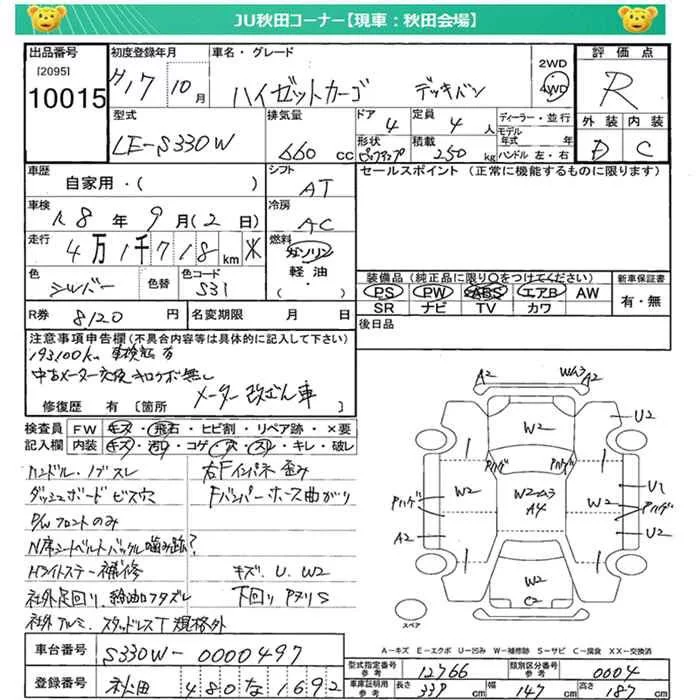 JU秋田コーナー【現車：秋田会場】
出品番号
[2095]
10015
初度登録年月
H17 10月
車名・グレード
ハイゼットカーゴ デッキバン
2WD
4WD
評価点
R
外装 内装
D C
型式
LE-S330W
排気量
660 cc
ドア
4
形状
ピックアップ
定員
4 人
積載
250 kg
ディーラー・並行
モデル年式 年
ハンドル 左・右
車歴
自家用・( )
シフト
AT
セールスポイント (正常に機能するものに限ります)
車検
R8年9月(2日)
冷房
AC
走行
4万1千718km ※
燃料
ガソリン
軽油・
( )
色
シルバー
色替
色コード
S31
装備品 (純正品に限り○をつけてください)
PS PW ABS エアB AW
SR ナビ TV カワ
新車保証書
有・無
R券 8120 円
名変期限 月 日
後日品
注意事項申告欄(不具合内容等は具体的に記入して下さい)
193100km 車検証有
中古メーター交換 キロケボ無し
メーター改ざん車
修復歴 有 [箇所
検査員 FW キズ・飛石・ヒビ割・リペア跡・×要
記入欄 内装 キズ・汚れ・コゲ・穴・スレ・キレ・破レ
ハンドル・ノブスレ
右Fインパネ歪み
ダッシュボードビス穴
Fバンパーホース曲がり
P/Wフロントのみ
N席シートベルトバックル噛み跡?
Hライトステー補修
キズ、U、W2
社外足回り、給油口フタズレ
下回りPヌリS
社外アルミ、スタッドレスT規格外
A2
Wム3
A2
W2
U2
Pハゲ
Pハゲ
Pハゲ
W2
W2ム3
A4
W2
U2
Pハゲ
A2
U2
W2
C2
スペア
A－キズ E－エクボ U－凹み W－補修跡 S－サビ C－腐食 XX－交換済
車台番号
S330W-0000497
登録番号
秋田 480 な 1692
型式指定番号
参考
12766
類別区分番号
参考
0004
車庫証明用
参考
長さ 339 cm 幅 147 cm 高さ 187 cm